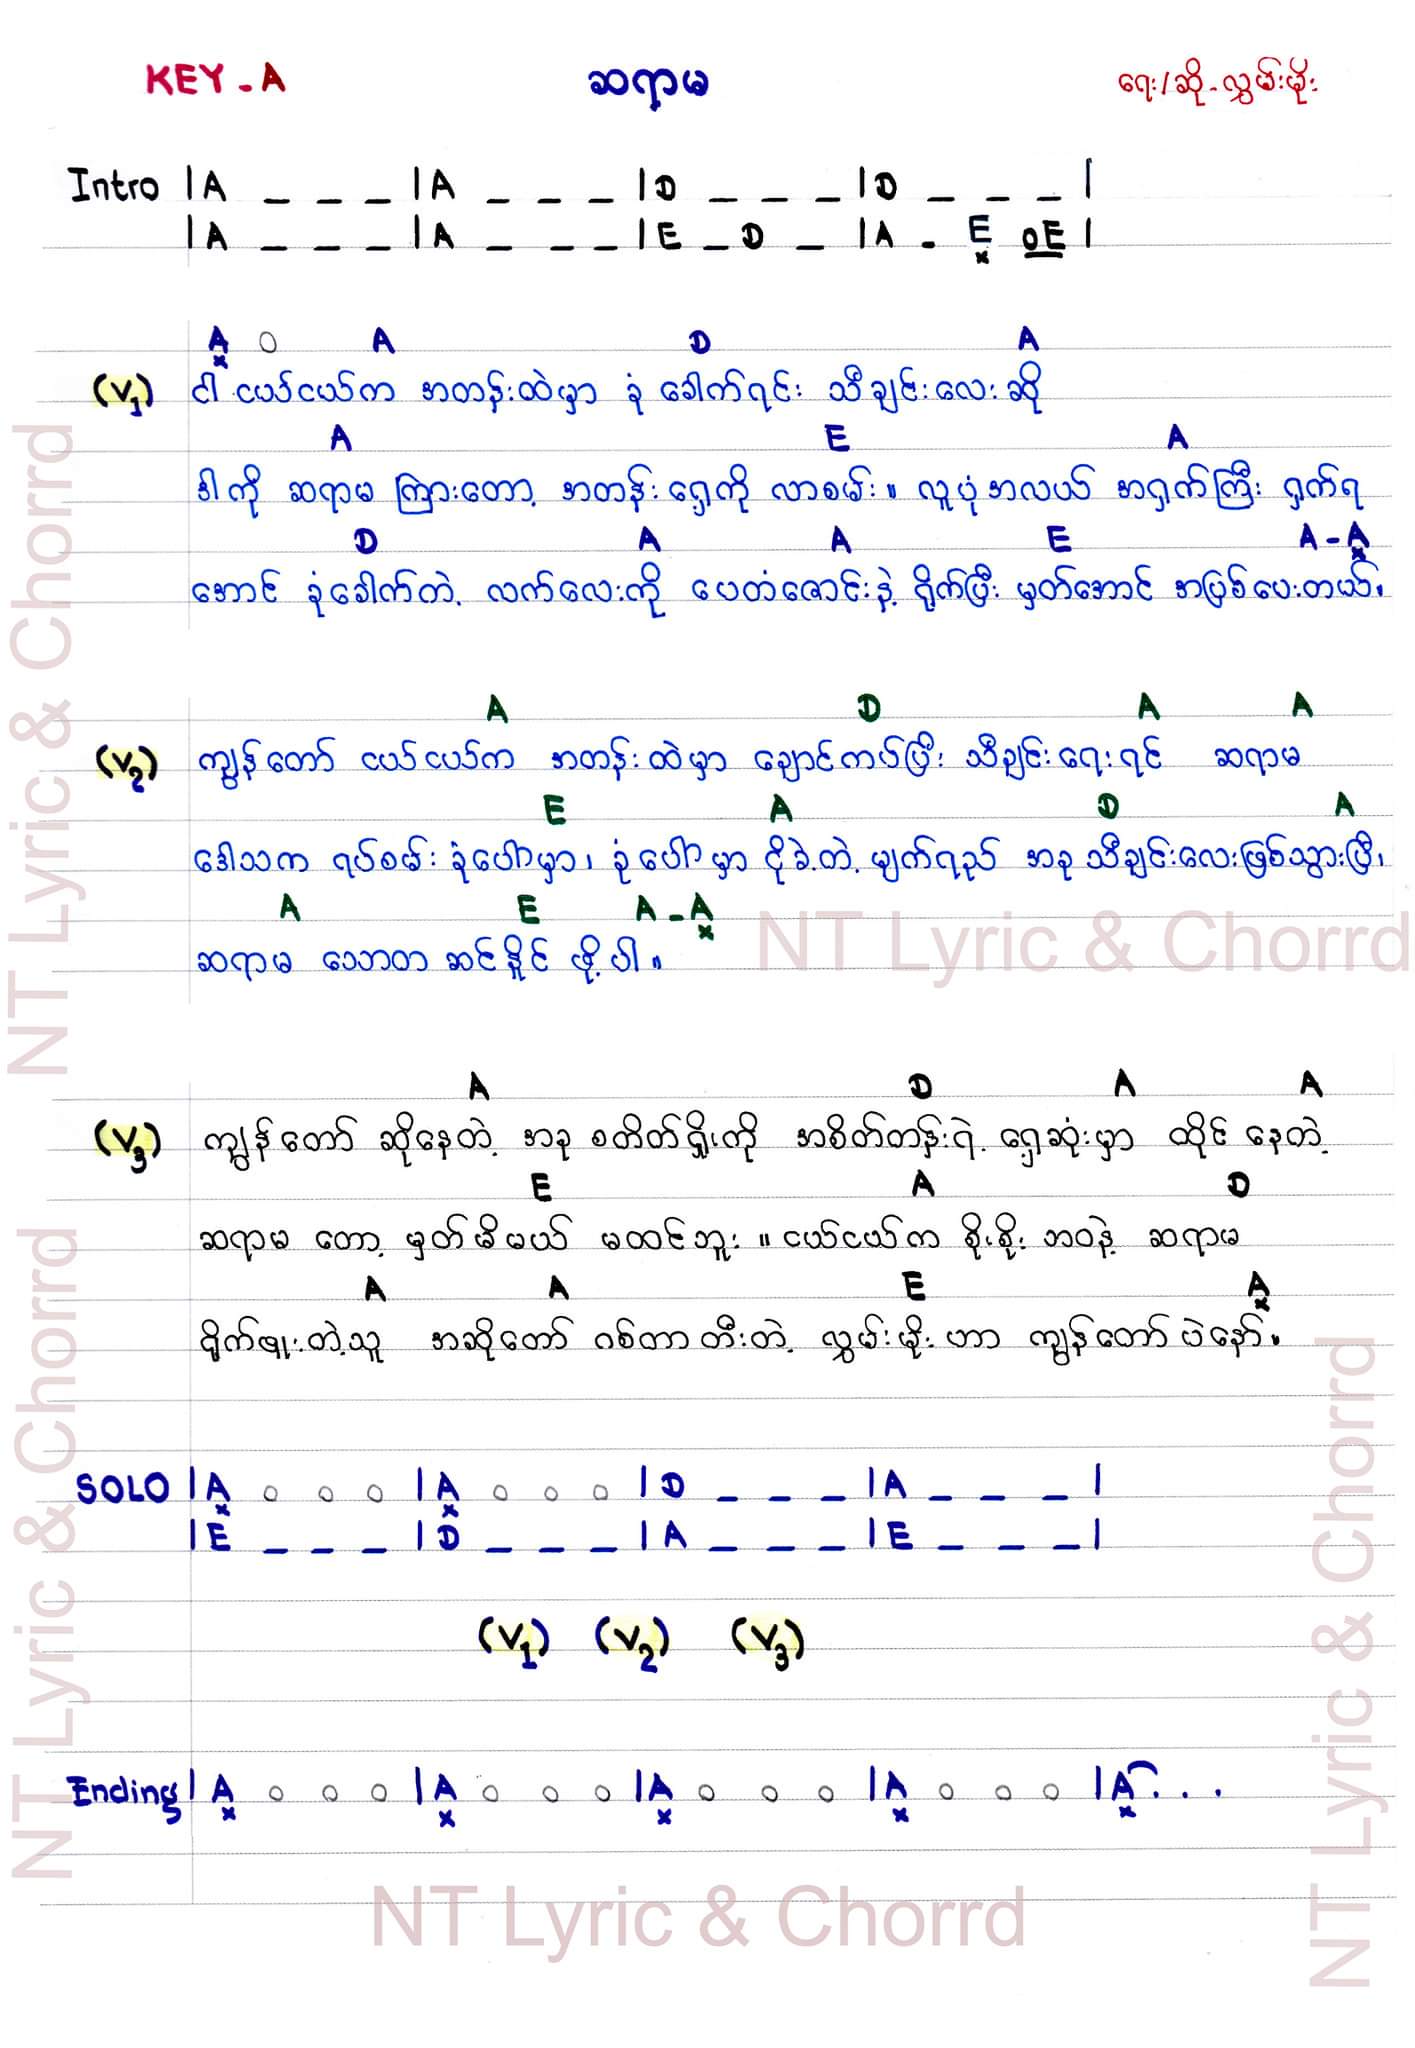 KEY - A ဆရာမ ရေး/ဆို - လွှမ်းမိုး
Intro | A _ _ _ | A _ _ _ | D _ _ _ | D _ _ _ |
| A _ _ _ | A _ _ _ | E _ D _ | A - E x o E |
A x o A D A
(V1) ငါ ငယ်ငယ်က အတန်းထဲမှာ ခုံ ခေါက်ရင်း သီချင်းလေး ဆို
A E A
ဒါကို ဆရာမ ကြားတော့ အတန်းရှေ့ကို လာစမ်း။ လူပုံအလယ် အရှက်ကြီး ရှက်ရ
D A A E A - A x
အောင် ခုံခေါက်တဲ့ လက်လေးကို ပေတံစောင်းနဲ့ ရိုက်ပြီး မှတ်အောင် အပြစ်ပေးတယ်၊
A D A A
(V2) ကျွန်တော် ငယ်ငယ်က အတန်းထဲမှာ ချောင်ကပ်ပြီး သီချင်းရေးရင် ဆရာမ
E A D A
ဒေါသက ရပ်စမ်း ခုံပေါ်မှာ၊ ခုံပေါ်မှာ ငိုခဲ့တဲ့ မျက်ရည် အခု သီချင်းလေးဖြစ်သွားပြီ၊
A E A - A x
ဆရာမ သဘောတ ဆင်နိုင် ဖို့ပါ။
A D A A
(V3) ကျွန်တော် ဆိုနေတဲ့ အခု စတိတ်ရှိုးကို အစိတ်တန်းရဲ့ ရှေ့ဆုံးမှာ ထိုင်နေတဲ့
E A D
ဆရာမ တော့ မှတ်မိမယ် မထင်ဘူး ။ ငယ်ငယ်က စိုးစိုး ဘဝနဲ့ ဆရာမ
A A E A x
ရိုက်ဖူးတဲ့သူ အဆိုတော် ဂစ်တာတီးတဲ့ လွှမ်းမိုး ဟာ ကျွန်တော်ပဲနော်။
SOLO | A x o o o | A x o o o | D _ _ _ | A _ _ _ |
| E _ _ _ | D _ _ _ | A _ _ _ | E _ _ _ |
(V1) (V2) (V3)
Ending | A x o o o | A x o o o | A x o o o | A x o o o | A x . . .
NT Lyric & Chorrd
NT Lyric & Chorrd
NT Lyric & Chorrd
NT Lyric & Chorrd
NT Lyric & Chorrd